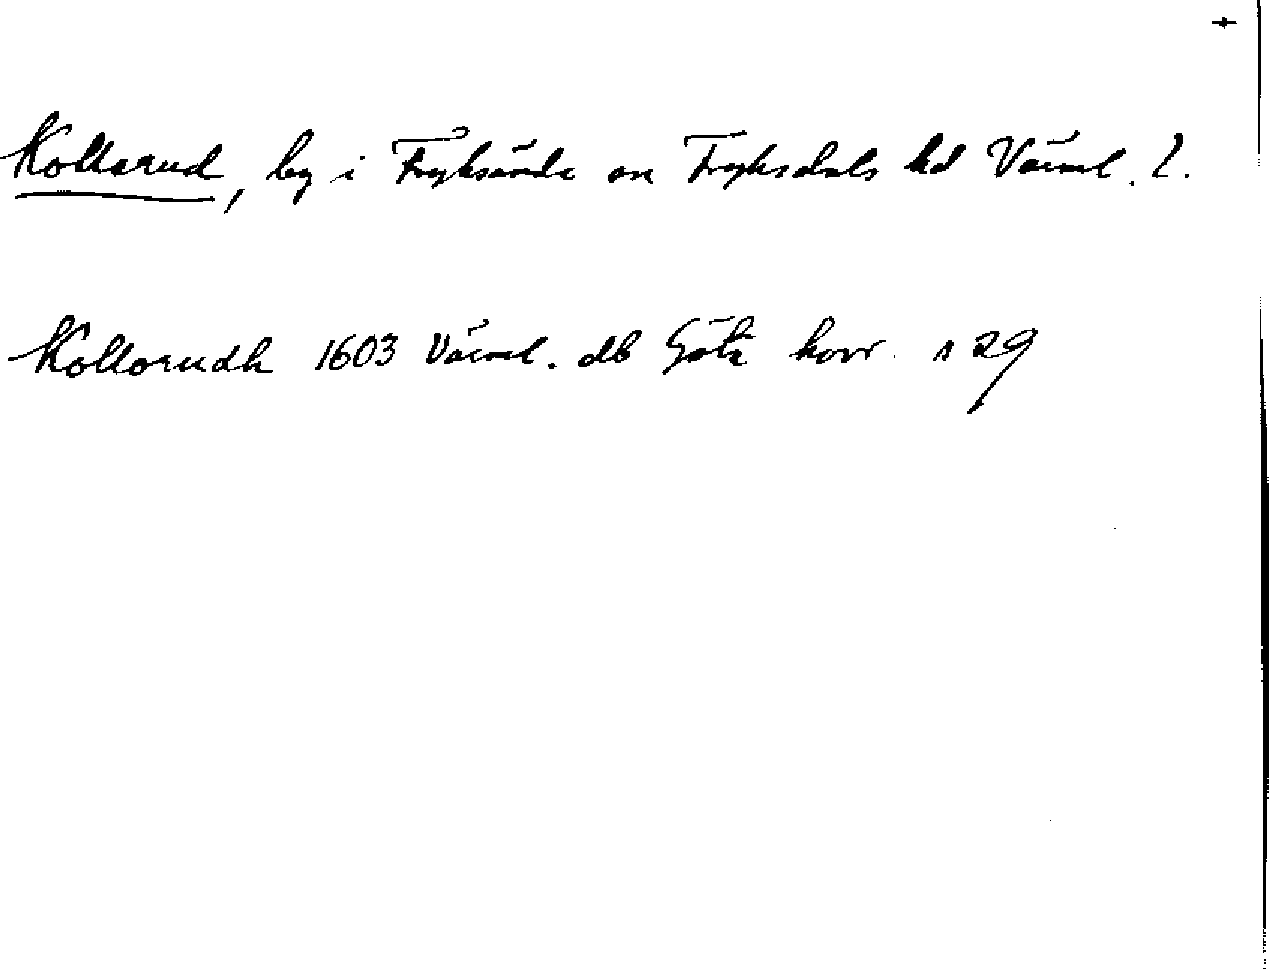 Kollerud, by i Fryksände sn Fryksdals hd Värml. l.
Kollorudh 1603 Värml. db Göta hovr. s 29